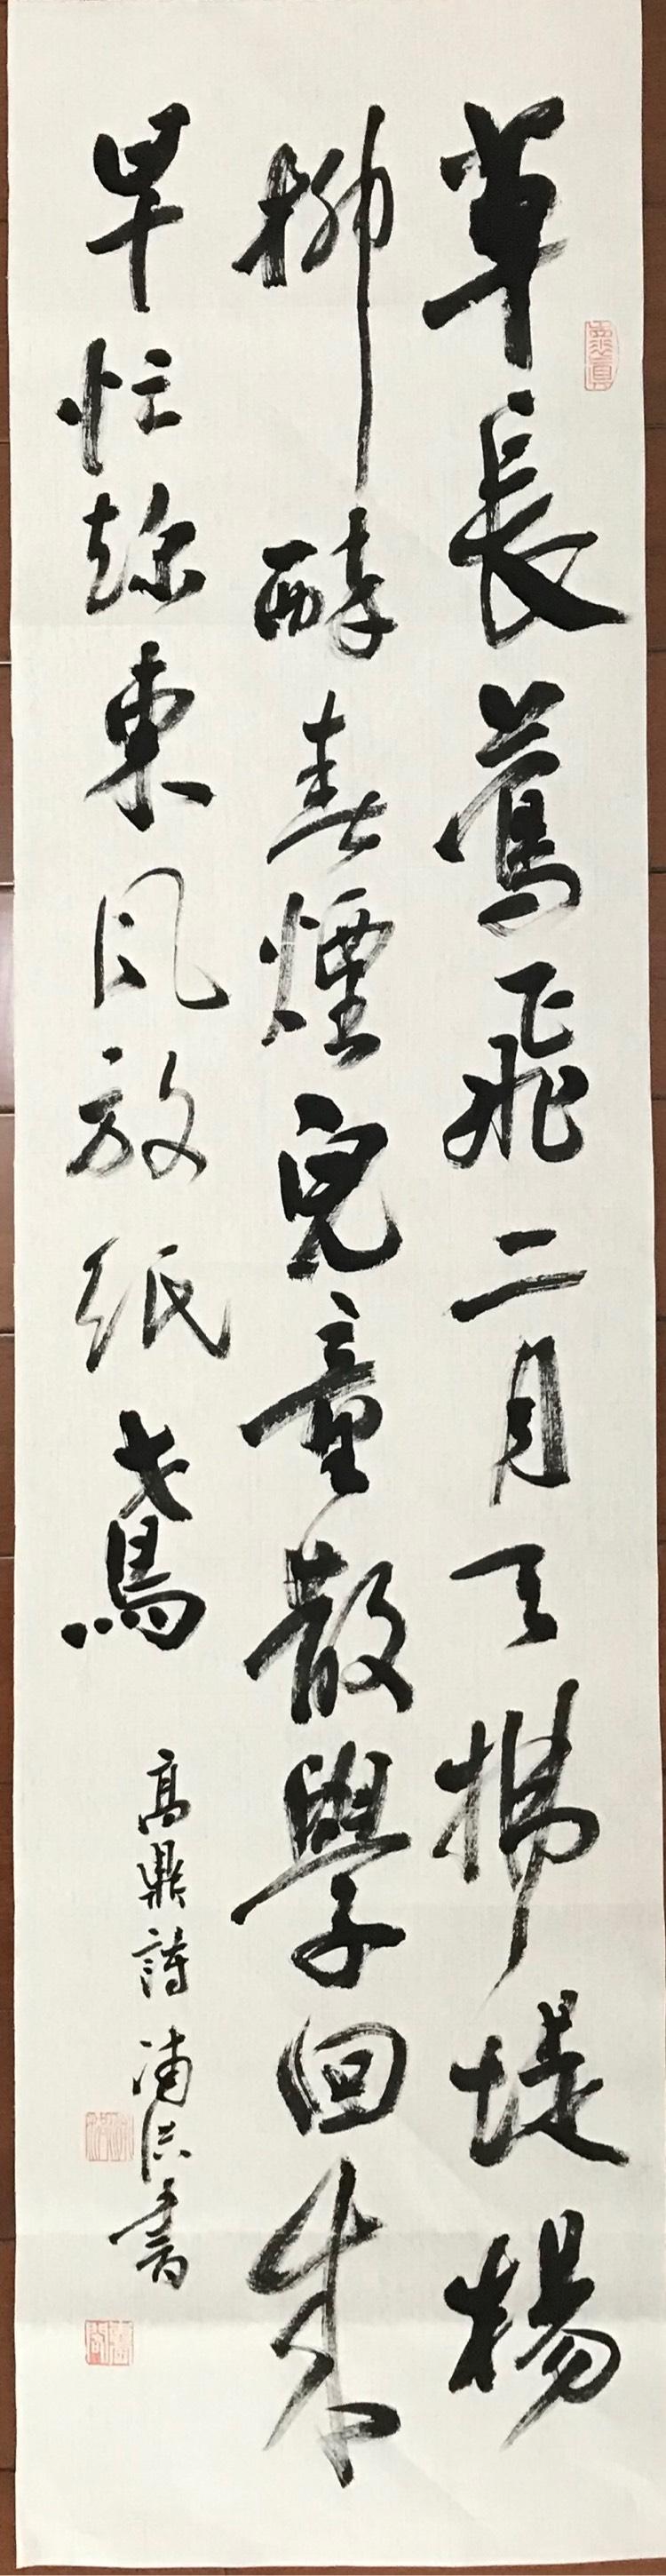 草長鶯飛二月天拂堤楊
柳醉春煙兒童散學回來
早忙趂東風放紙鳶
高鼎詩 書